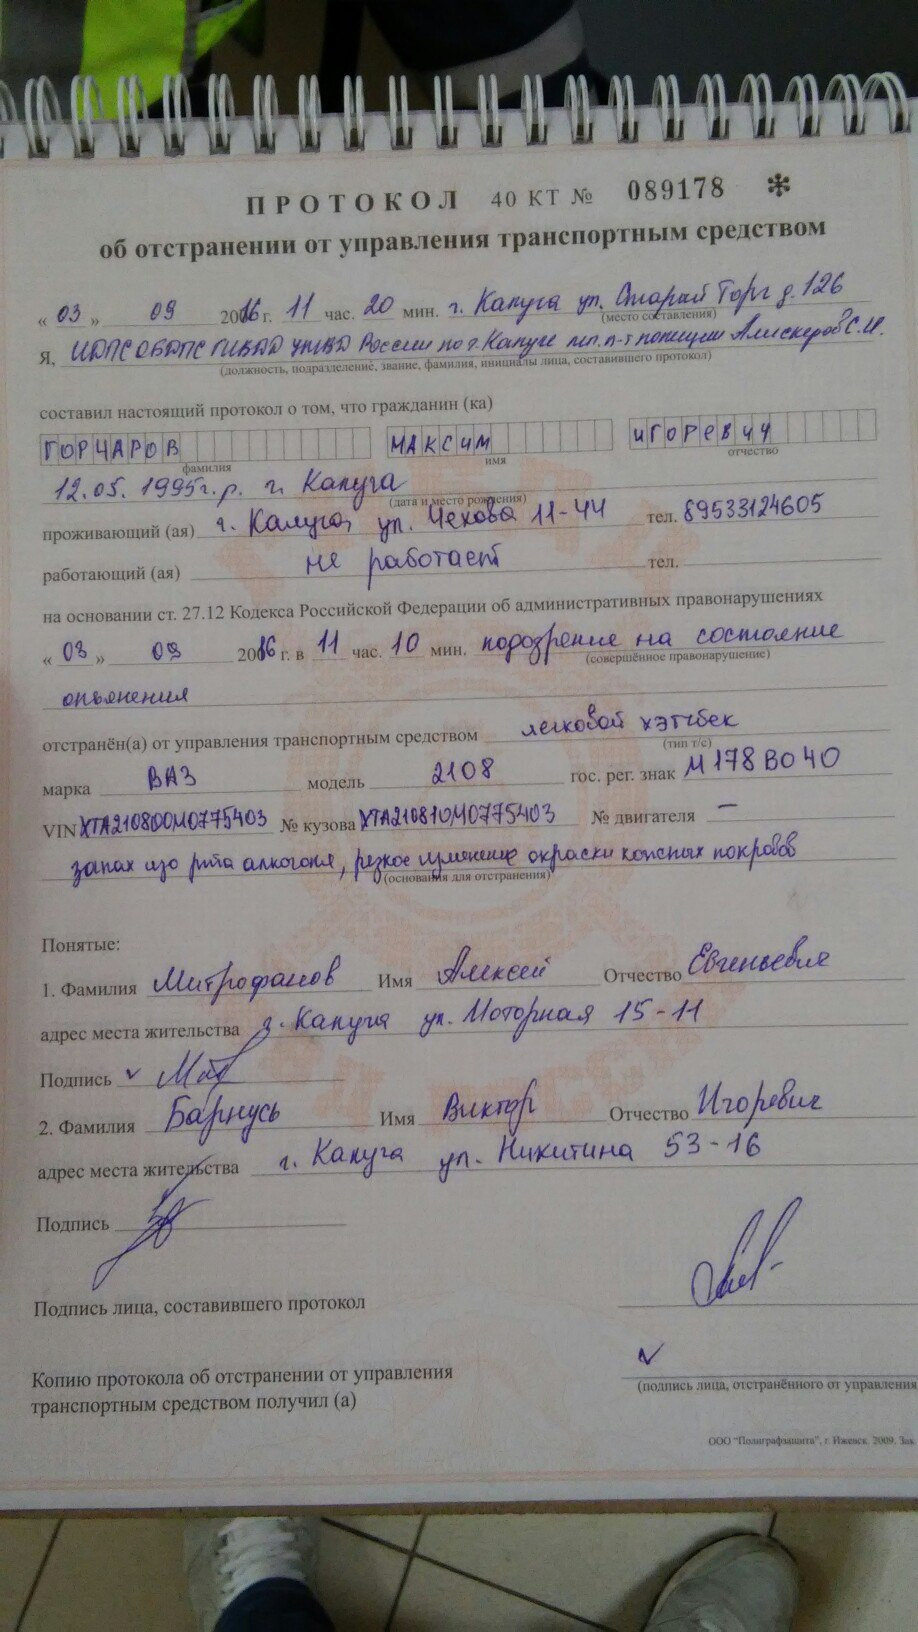 ПРОТОКОЛ 40 КТ № 089178 *
об отстранении от управления транспортным средством
« 03 » 09 2016 г. 11 час. 20 мин. г. Калуга ул. Старый Торг д. 126
(место составления)
Я, ИДПС ОБДПС ГИБДД УМВД России по г. Калуге мл. л-т полиции Алискеров С.И.
(должность, подразделение, звание, фамилия, инициалы лица, составившего протокол)
составил настоящий протокол о том, что гражданин (ка)
ГОРЧАРОВ МАКСИМ ИГОРЕВИЧ
фамилия имя отчество
12.05.1995г.р. г. Калуга
(дата и место рождения)
проживающий (ая) г. Калуга, ул. Чехова 11-44 тел. 89533124605
работающий (ая) не работает тел.
на основании ст. 27.12 Кодекса Российской Федерации об административных правонарушениях
« 03 » 09 2016 г. в 11 час. 10 мин. подозрение на состояние
(совершённое правонарушение)
опьянения
отстранён(а) от управления транспортным средством легковой хэтчбек
(тип т/с)
марка ВАЗ модель 2108 гос. рег. знак М178ВО40
VIN ХТА210800М0775403 № кузова ХТА210810М0775403 № двигателя —
запах изо рта алкоголя, резкое изменение окраски кожных покровов
(основания для отстранения)
Понятые:
1. Фамилия Митрофанов Имя Алексей Отчество Евгеньевич
адрес места жительства г. Калуга ул. Моторная 15-11
Подпись
2. Фамилия Барнусь Имя Виктор Отчество Игоревич
адрес места жительства г. Калуга ул. Никитина 53-16
Подпись
Подпись лица, составившего протокол
Копию протокола об отстранении от управления
транспортным средством получил (а)
(подпись лица, отстранённого от управления
ООО "Полиграфзащита", г. Ижевск. 2009. Зак.